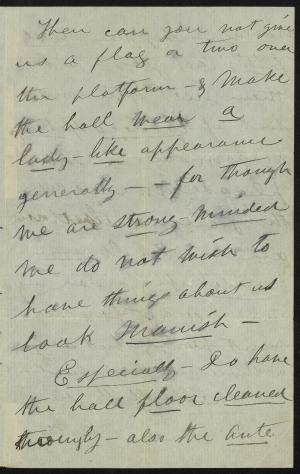 Then can you not give
us a flag or two over
the platform - & make
the hall wear a
lady-like appearance
generally - - for though
we are strong-minded
we do not wish to
have things about us
look Manish -
Especially - do have
the hall floor cleaned
throughly - also the ante